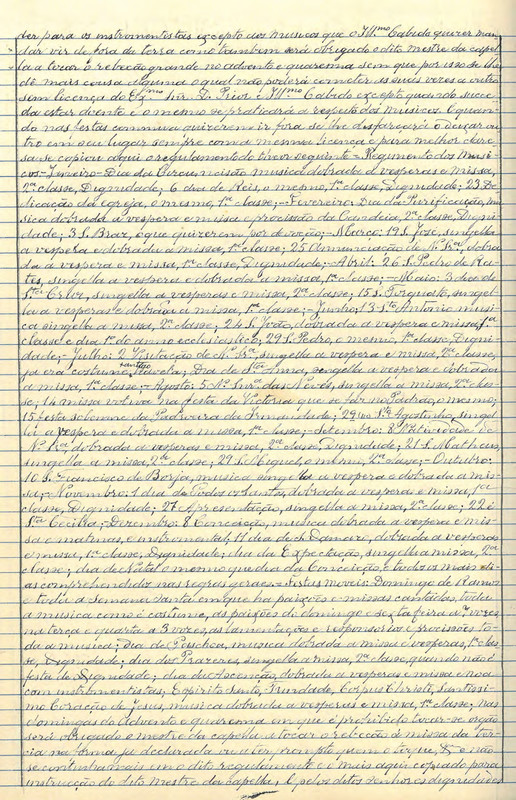 der para os instromentistas excepto dos musicos que o Ill.mo Cabido querer man
dar vir de fora da terra como tambem será obrigado o dito mestre da capel
la a tocar o rebecão grande no advento e quaresma sem que por isso se lhe
dê mais cousa alguma o qual não poderá cometer as suas vezes a outro
sem licença do Ex.mo Snr. D. Prior e Ill.mo Cabido excepto quando succe
da estar doente e o mesmo se praticará a respeito dos musicos e quan
do nas festas commuas quizerem ir fora se lhe disfarçará o deixar ou
tro em seu lugar sempre com a mesma licença e para melhor clare
sa se copiou aqui o regulamento do theor seguinte = Regimento dos musi
cos = Janeiro = Dia da Circumcisão musica dobrada a vesperas e missa,
2.ª classe, Dignidade; 6 dia de Reis, o mesmo, 1.ª classe, Dignidade; 23 De
dicação da egreja, o mesmo, 1.ª classe; = Fevereiro: Dia da Purificação, mu
sica dobrada a vespera e missa e procissão da Candeia, 2.ª classe, Digni
dade; 3 S. Braz, o que quizerem por devoção; = Março: 19 S. José, singella
a vespera e dobrada a missa, 1.ª classe; 25 Annunciação de N.ª Sr.ª dobra
da a vespera e missa, 1.ª classe, Dignidade; = Abril: 26 S. Pedro de Ra
tes, singella a vespera e dobrada a missa, 1.ª classe; = Maio: 3 dia de
S.ta Cruz, singella a vesperas e missa, 2.ª classe; 15 S. Torquato, singel
la a vesperas e dobrada a missa, 1.ª classe; = Junho: 13 S.to Antonio musi
ca singella a missa, 2.ª classe; 24 S. João, dobrada a vespera e missa, 1.ª
classe e dia 1.º do anno ecclesiastico; 29 S. Pedro, o mesmo, 1.ª classe, Digni
dade; = Julho: 2 Visitação de N.ª Sr.ª, singella a vespera e missa, 2.ª classe,
ja era costume, Dia de S.ta Anna, singella a vespera e dobrada
a missa, 1.ª classe; = Agosto: 5 N.ª Snr.ª das Neves, singella a missa, 2.ª clas
se; 14 missa votiva na festa da Victoria que se faz no Padrão, o mesmo;
15 festa solemne da Padroeira da Irmandade; 29 S.to Agostinho, singel
la a vespera e dobrada a missa, 1.ª classe; = Setembro: 8 Natividade de
N.ª Sr.ª dobrada a vesperas e missa, 2.ª classe, Dignidade; 21 S. Matheus,
singella a missa, 2.ª classe; 29 S. Miguel, o mesmo, 2.ª classe; = Outubro:
10 S. Francisco de Borja, musica singella a vespera e dobrada a mis
sa; = Novembro: 1 dia de Todos os Santos, dobrada a vespera e missa, 1.ª
classe, Dignidade; 27 Apresentação, singella a missa, 2.ª classe; 22
S.ta Cecilia; = Dezembro: 8 Conceição, musica dobrada a vespera e mis
sa e matinas, e instrumental; 11 dia de S. Damazo, dobrada a vesperas
e missa, 1.ª classe, Dignidade; dia da Expectação, singella a missa, 2.ª
classe; dia de Natal o mesmo que dia da Conceição, e todos os mais di
as comprehendidos nas regras geraes = Festas Moveis: Domingo de Ramos
e toda a Semana Santa em que ha paixões e missas cantadas, toda
a musica como é costume, as paixões de domingo e sexta feira a vozes,
na terça e quarta a 3 vozes, as lamentações e responsorios e procissões to
da a musica; Dia de Paschoa, musica dobrada a missa e vesperas, 1.ª clas
se, Dignidade; dia dos Prazeres, singella a missa, 2.ª classe, quando não é
festa de Dignidade; dia da Ascenção, dobrada a vesperas e missa e noa
com instromentistas; Espirito Santo, Trindade, Corpus Christi, Santissi
mo Coração de Jesus, musica dobrada a vesperas e missa, 1.ª classe; nas
domingas do Advento e quaresma em que é prohibido tocar-se orgão
será obrigado o mestre da capella a tocar o rebecão á missa da ter
cia na forma ja declarada e não
se continha mais em o dito regulamento e o mais aqui copiado para
instrucção do dito mestre da capella, E pelos ditos senhores dignidades